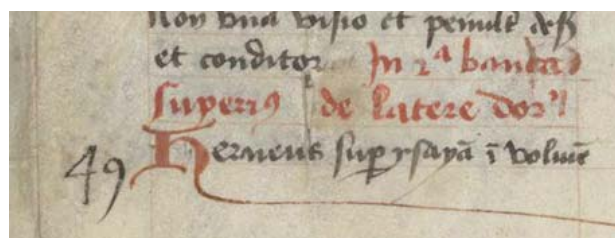 Non una visio et penult deß
et conditor In 2ª banca
superi9 de latere dor'
49 Herueus sup ysayā ī volumē